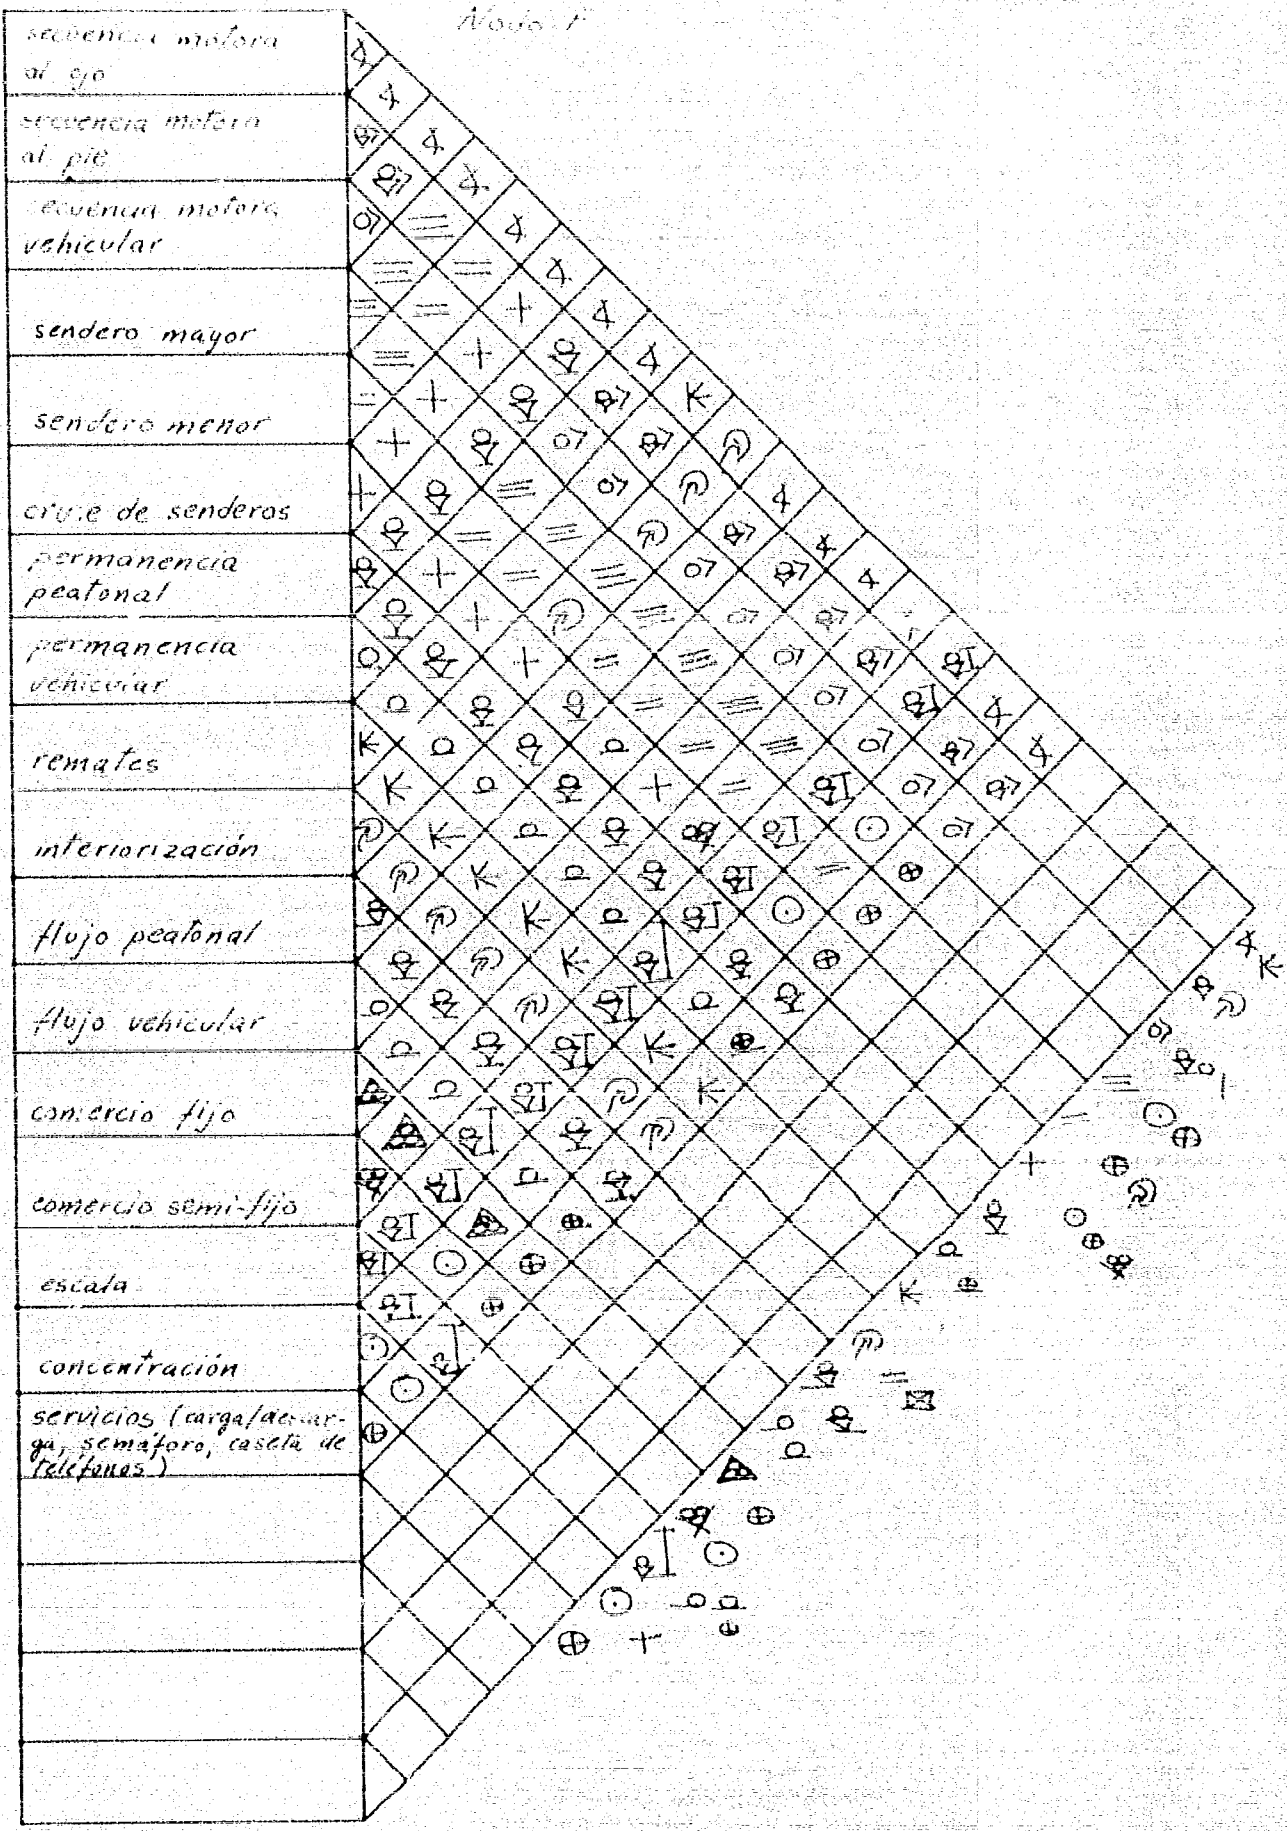 Nodo
secuencia motora
al ojo
secuencia motora
al pie
secuencia motora
vehicular
sendero mayor
sendero menor
cruce de senderos
permanencia
peatonal
permanencia
vehicular
remates
interiorización
flujo peatonal
flujo vehicular
comercio fijo
comercio semi-fijo
escala
concentración
servicios (carga/descar-
ga, semáforo, caseta de
teléfonos)